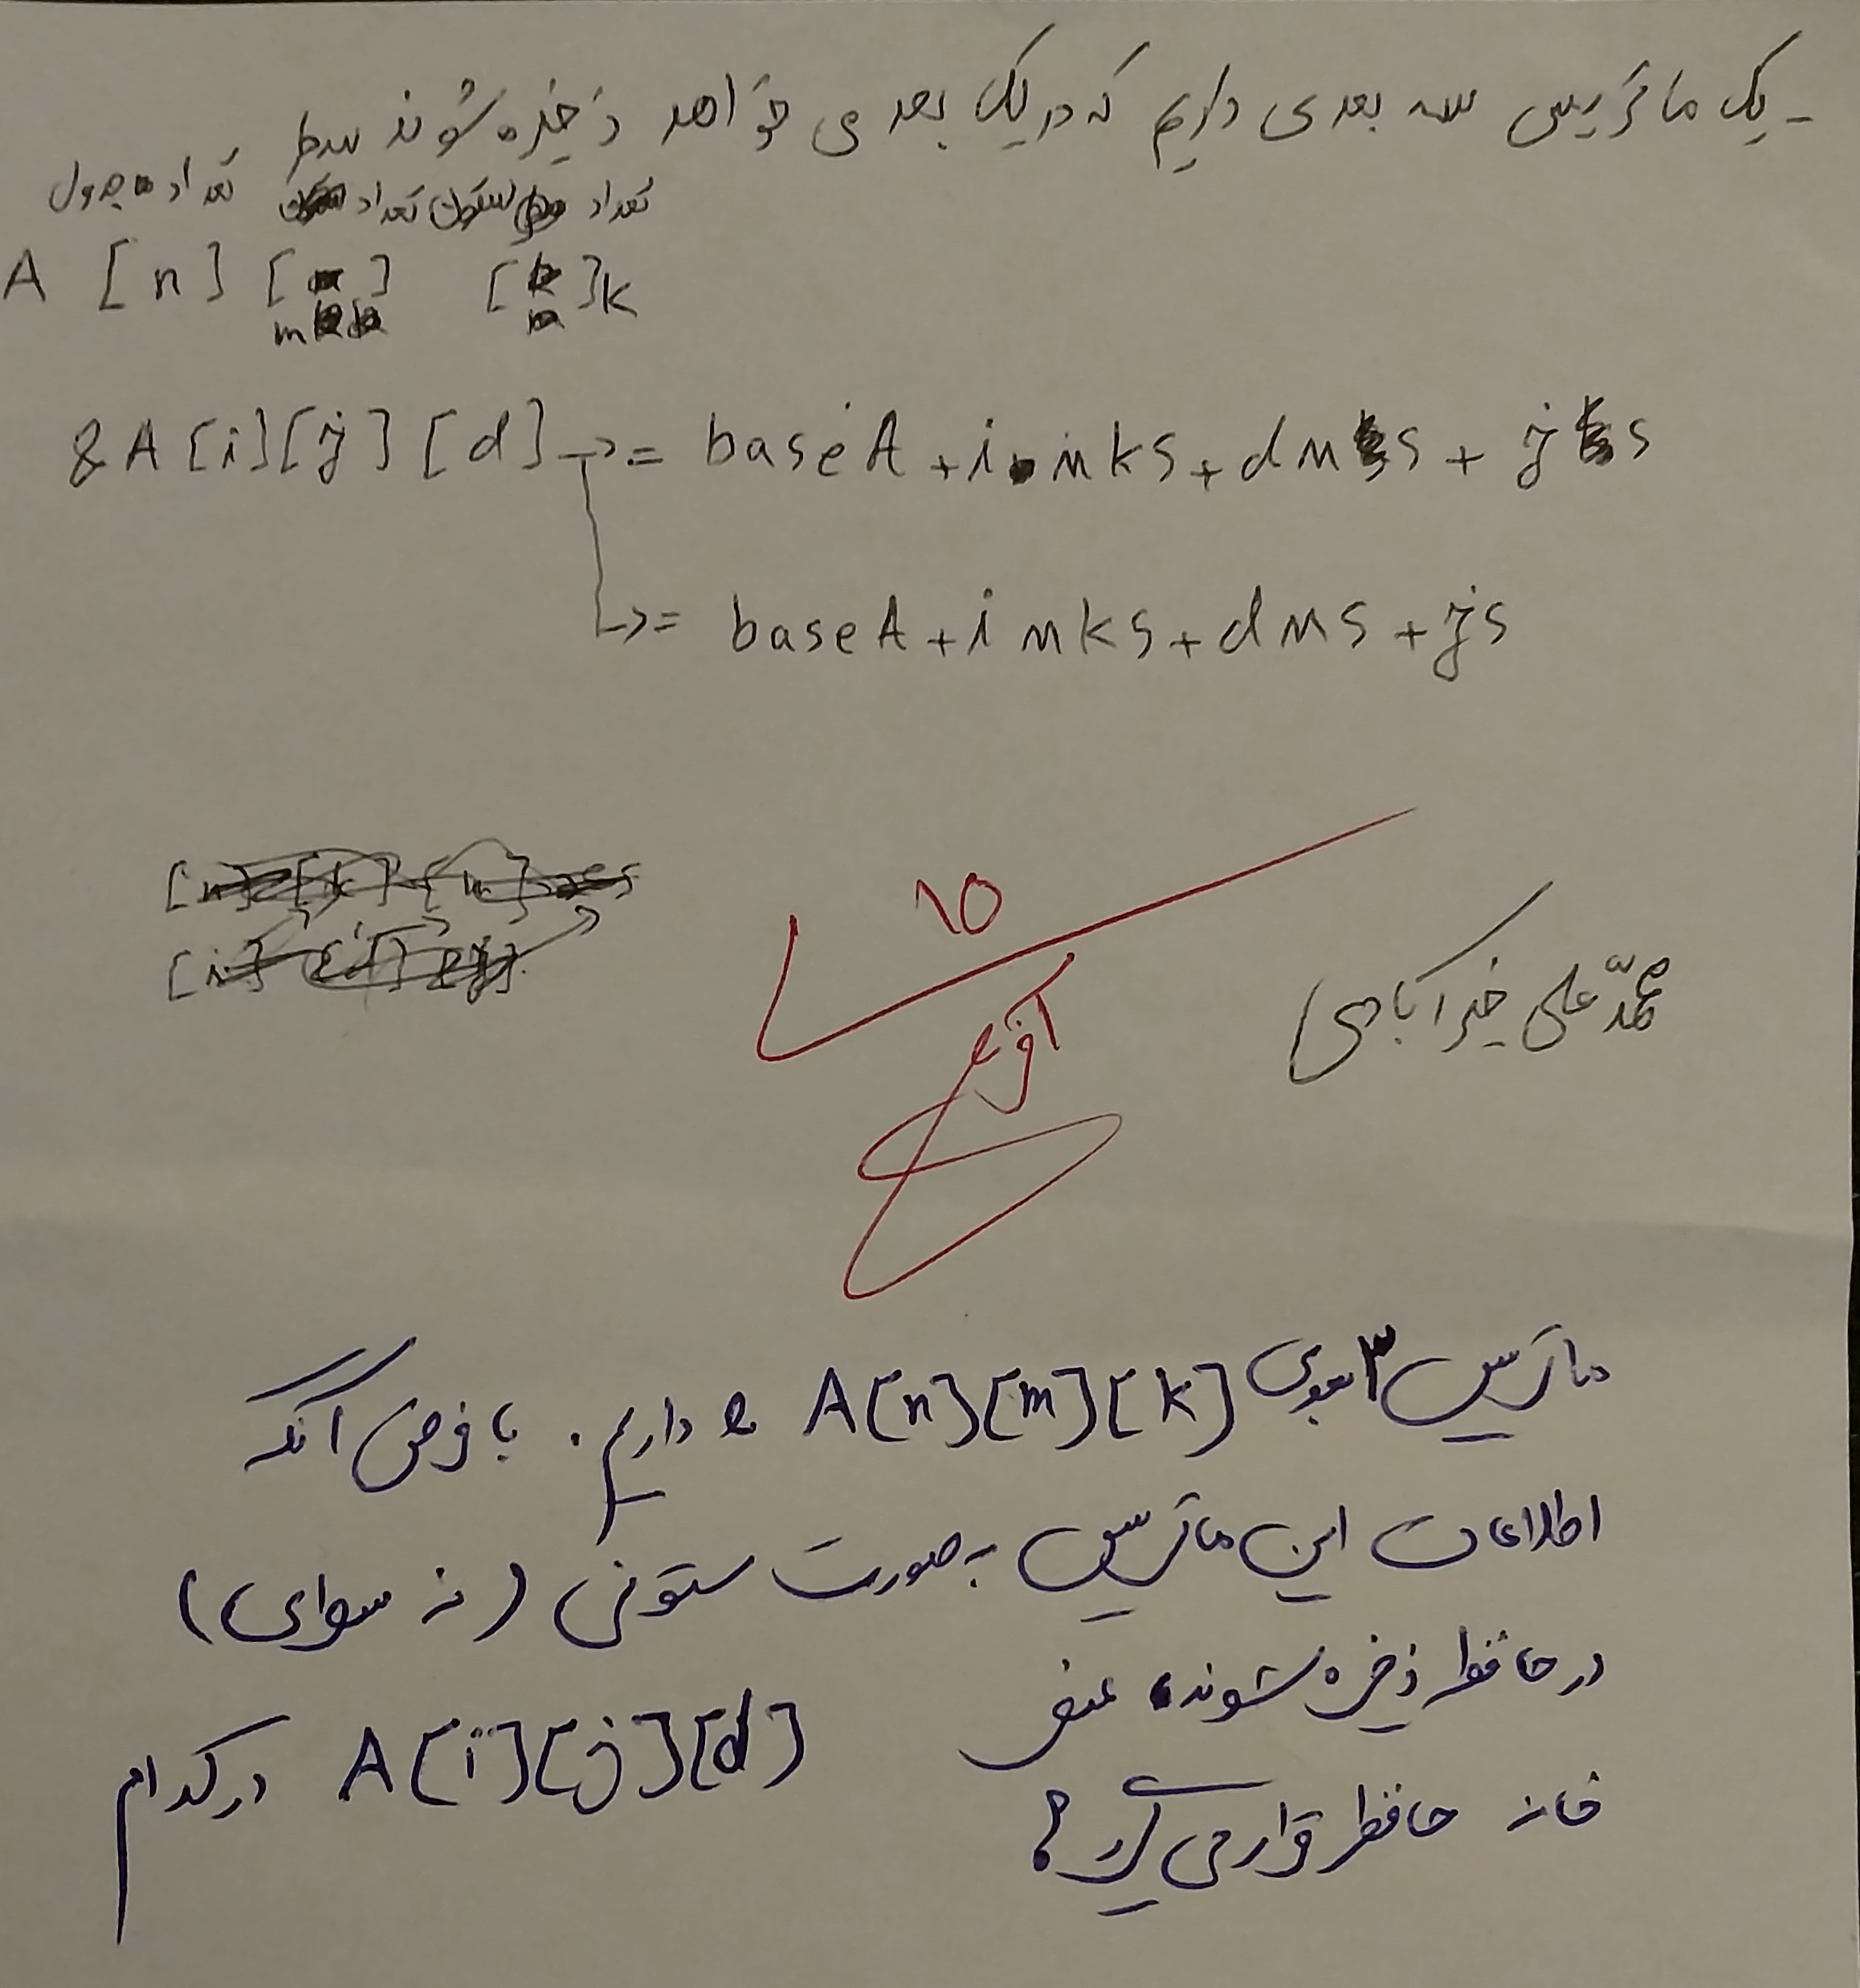 - یک ماتریس سه بعدی داریم که در یک بعدی خواهد ذخیره شوند سطر
تعداد ستون تعداد تعداد جدول
A [n] [m] [k]
&A[i][j][d] → = base A + i m k s + d m s + j s
↳ = base A + i m k s + d m s + j s
[n] [k] [m]
[i] [d] [j]
۱۵
محمّد علی خیرآبادی
ماتریس ۳ بعدی A[n][m][k] داریم. با فرض آنکه
اطلاعات این ماتریس به صورت ستونی (نه سطری)
در حافظه ذخیره شوند، عنصر
A[i][j][d] در کدام
خانه حافظه قرار می‌گیرد؟